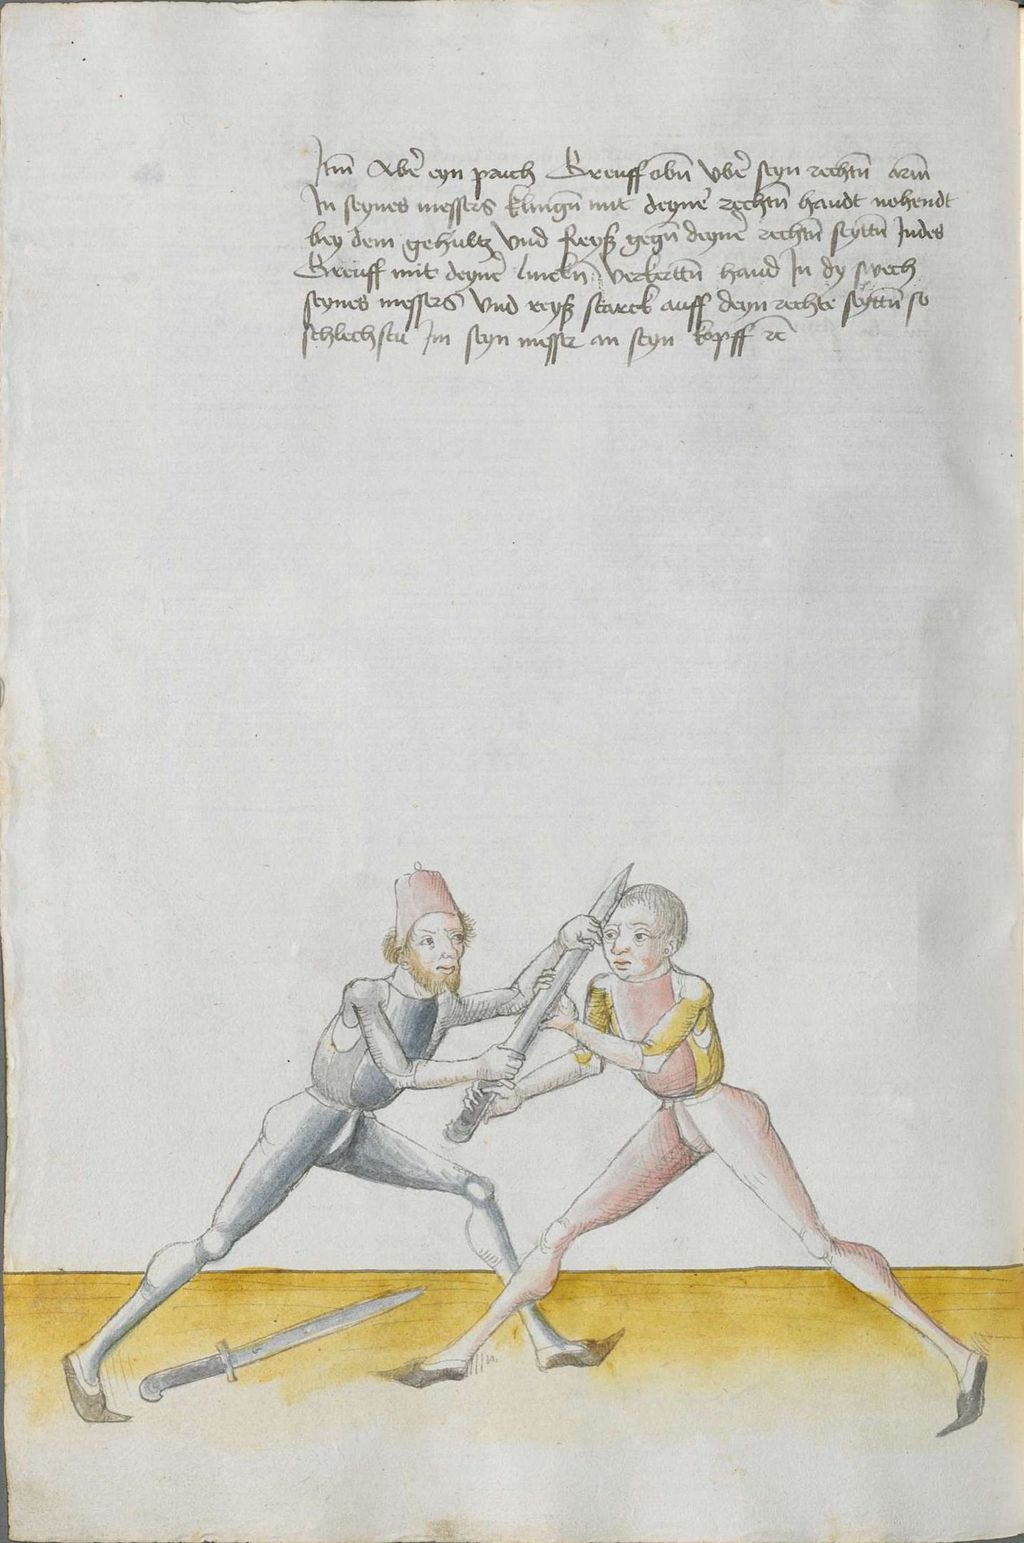 Itm̄ Aber̄ eyn pruch Greuff obñ vber̄ seyn rechtñ arm̄
In seynes messers klingñ mit deyner̄ rechtñ handt nohendt
bey dem gehultz vnd Reyß gegñ deyner̄ rechtñ seyttñ Indes
Greuff mit deyner̄ lincknñ verkerttñ hand In dy swech
seynes messers vnd reyß starck auff deyn rechte seyttñ so
schlechstu Im seyn messer an seyn kopff